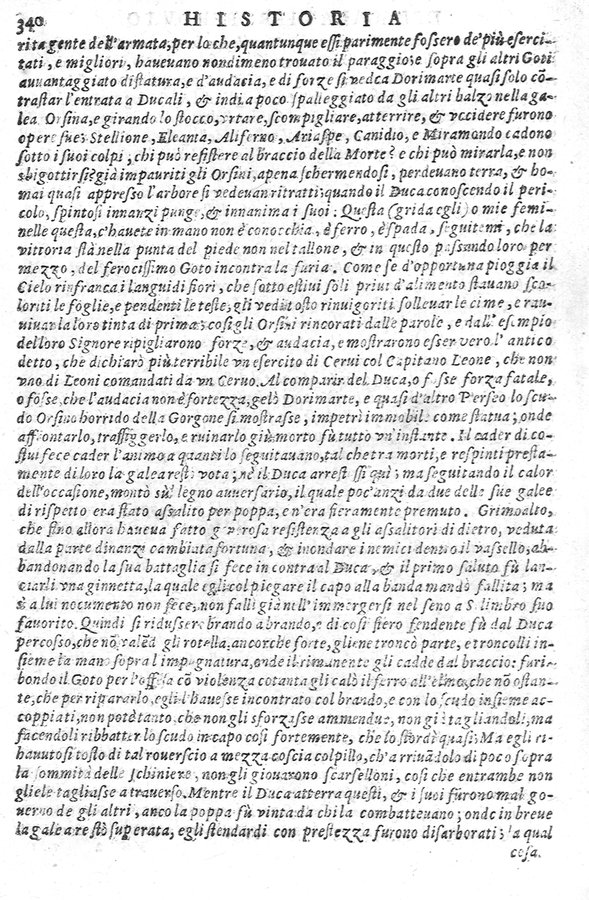 340 HISTORIA
rita gente dell'armata, per lo che, quantunque essi parimente fossero de' più eserci-
tati, e migliori, haueuano nondimeno trouato il paraggio; e sopra gli altri Goti
auuantaggiato di statura, e d'audacia, e di forze si vedea Dorimarte quasi solo cō-
trastar l'entrata a Ducali, & indi a poco spalleggiato da gli altri balzo nella ga-
lea Orsina, e girando lo stocco, vrtare, scompigliare, atterrire, & vccidere furono
opere sue; Stellione, Eleanta, Aliferno, Ariaspe, Canidio, e Miramondo cadono
sotto i suoi colpi; chi può resistere al braccio della Morte? e chi può mirarla, e non
sbigottirsi? già impauriti gli Orsini, apena schermendosi, perdeuano terra, & ho-
mai quasi appresso l'arbore si vedeuan ritratti; quando il Duca conoscendo il peri-
colo, spintosi innanzi punge, & innanima i suoi: Questa (grida egli) o mie femi-
nelle questa, c'hauete in mano non è conocchia, è ferro, è spada, seguitemi, che la
vittoria stà nella punta del piede non nel tallone, & in questo passando loro per
mezzo, del ferocissimo Goto incontra la furia. Come se d'opportuna pioggia il
Cielo rinfranca i languidi fiori, che sotto estiui soli priui d'alimento stauano sco-
loriti le foglie, e pendenti le teste; gli vedi tosto rinuigoriti solleuar le cime, e rau-
uiuar la loro tinta di prima; così gli Orsini rincorati dalle parole, e dall'esempio
del loro Signore ripigliarono forze, & audacia, e mostrarono esser vero l'antico
detto, che dichiarò più terribile vn esercito di Cerui col Capitano Leone, che non
vno di Leoni comandati da vn Ceruo. Al comparir del Duca, o fosse forza fatale,
o fosse, che l'audacia non è fortezza, gelò Dorimarte, e quasi d'altro Perseo lo scu-
do Orsino horrido della Gorgone si mostrasse, impetrì immobile come statua; onde
affrontarlo, trafiggerlo, e ruinarlo giù morto fù tutto vn'instante. Il cader di co-
stui fece cader l'animo a quanti lo seguitauano, tal che tra morti, e respinti presta-
mente di loro la galea restò vota; nè il Duca arrestossi quì; ma seguitando il calor
dell'occasione, montò sul legno auuersario, il quale poc'anzi da due delle sue galee
di rispetto era stato assalito per poppa, e n'era fieramente premuto. Grimoalto,
che sino allora haueua fatto generosa resistenza a gli assalitori di dietro, veduta
dalla parte dinanzi cambiata fortuna, & inondare i nemici dentro il vassello, ab-
bandonando la sua battaglia si fece incontra al Duca, & il primo saluto fù lan-
ciarli vna ginnetta, la quale egli col piegare il capo alla banda mandò fallita; ma
se a lui nocumento non fece, non fallì già nell'immergersi nel seno a Silimbro suo
fauorito. Quindi si ridussero brando a brando, e di così fiero fendente fù dal Duca
percosso, che nō valēdogli rotella, ancorche forte, gliene troncò parte, e troncolli in-
sieme la mano sopra l'impugnatura, onde il rimanente gli cadde dal braccio: furi-
bondo il Goto per l'offesa cō violenza cotanta gli calò il ferro all'elmo, che nō ostan-
te, che per ripararlo, egli l'hauesse incontrato col brando, e con lo scudo insieme ac-
coppiati, non potè tanto, che non gli sforzasse ammendue, non già tagliandoli, ma
facendoli ribbatter lo scudo in capo così fortemente, che lo stordì quasi; Ma egli ri-
hauutosi tosto di tal rouerscio a mezza coscia colpillo, ch'arriuādolo di poco sopra
la sommità delle schiniere, non gli giouarono scarselloni, così che entrambe non
gliele tagliasse a trauerso. Mentre il Duca atterra questi, & i suoi fùrono mal go-
uerno de gli altri, anco la poppa fù vinta da chi la combatteuano; onde in breue
la galea restò superata, e gli stendardi con prestezza furono disarborati; la qual
cosa.